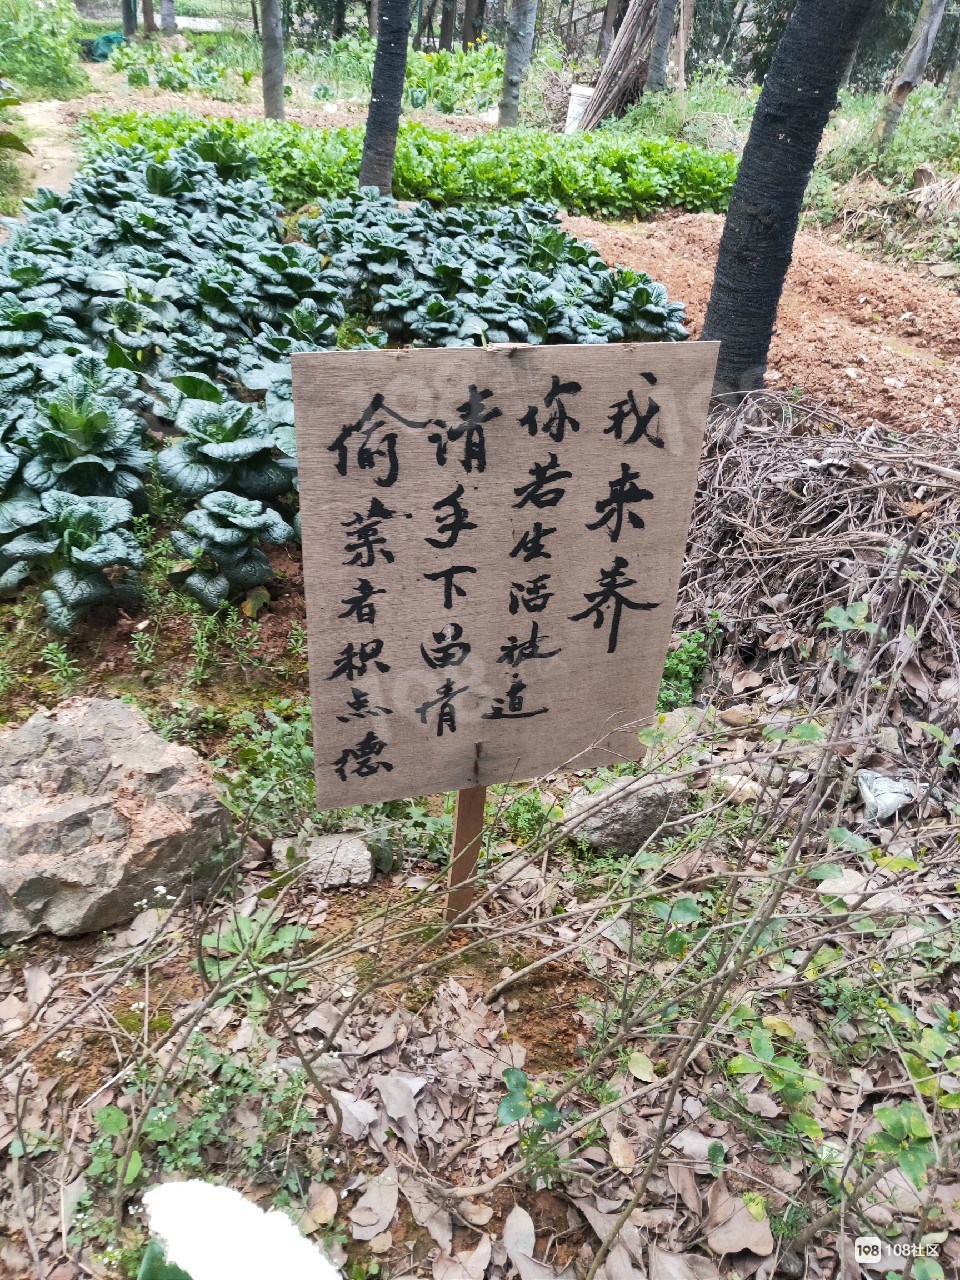 偷菜者积点德
请手下留情
你若生活被迫
我来养
108社区